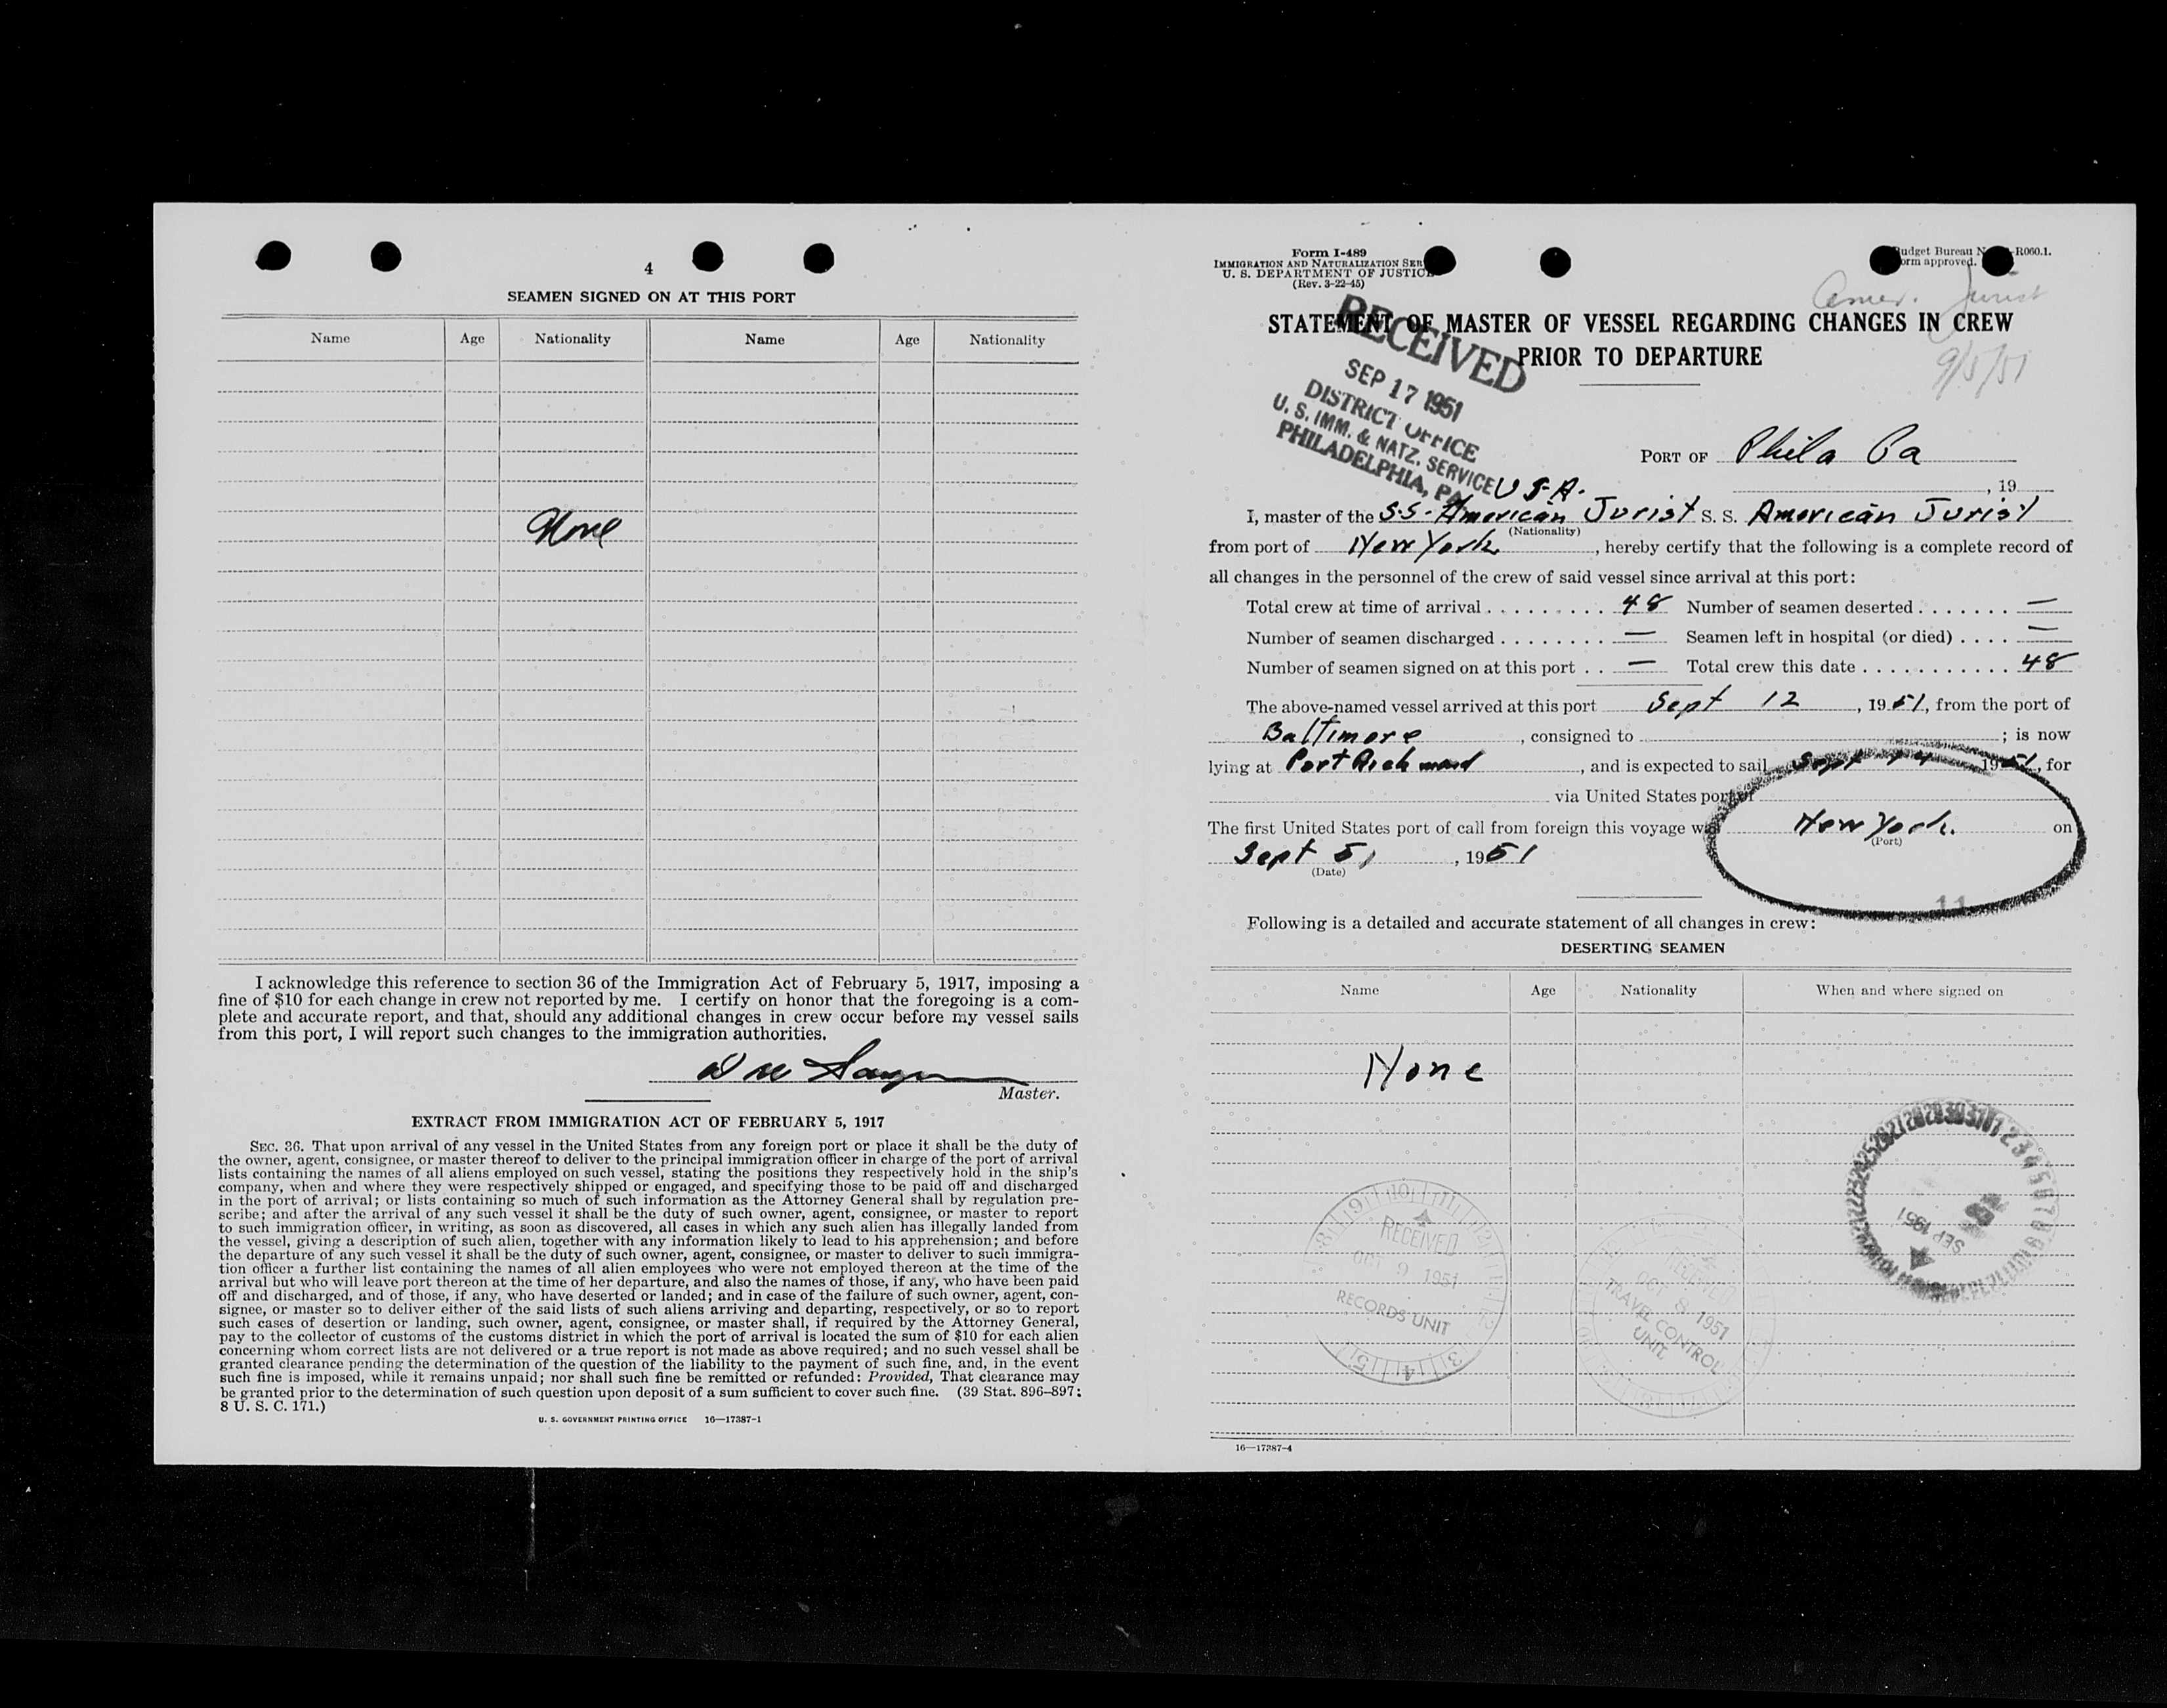 4
SEAMEN SIGNED ON AT THIS PORT
Name Age Nationality Name Age Nationality
None
I acknowledge this reference to section 36 of the Immigration Act of February 5, 1917, imposing a
fine of $10 for each change in crew not reported by me. I certify on honor that the foregoing is a com-
plete and accurate report, and that, should any additional changes in crew occur before my vessel sails
from this port, I will report such changes to the immigration authorities.
Master.
EXTRACT FROM IMMIGRATION ACT OF FEBRUARY 5, 1917
SEC. 36. That upon arrival of any vessel in the United States from any foreign port or place it shall be the duty of
the owner, agent, consignee, or master thereof to deliver to the principal immigration officer in charge of the port of arrival
lists containing the names of all aliens employed on such vessel, stating the positions they respectively hold in the ship's
company, when and where they were respectively shipped or engaged, and specifying those to be paid off and discharged
in the port of arrival; or lists containing so much of such information as the Attorney General shall by regulation pre-
scribe; and after the arrival of any such vessel it shall be the duty of such owner, agent, consignee, or master to report
to such immigration officer, in writing, as soon as discovered, all cases in which any such alien has illegally landed from
the vessel, giving a description of such alien, together with any information likely to lead to his apprehension; and before
the departure of any such vessel it shall be the duty of such owner, agent, consignee, or master to deliver to such immigra-
tion officer a further list containing the names of all alien employees who were not employed thereon at the time of the
arrival but who will leave port thereon at the time of her departure, and also the names of those, if any, who have been paid
off and discharged, and of those, if any, who have deserted or landed; and in case of the failure of such owner, agent, con-
signee, or master so to deliver either of the said lists of such aliens arriving and departing, respectively, or so to report
such cases of desertion or landing, such owner, agent, consignee, or master shall, if required by the Attorney General,
pay to the collector of customs of the customs district in which the port of arrival is located the sum of $10 for each alien
concerning whom correct lists are not delivered or a true report is not made as above required; and no such vessel shall be
granted clearance pending the determination of the question of the liability to the payment of such fine, and, in the event
such fine is imposed, while it remains unpaid; nor shall such fine be remitted or refunded: Provided, That clearance may
be granted prior to the determination of such question upon deposit of a sum sufficient to cover such fine. (39 Stat. 896–897;
8 U. S. C. 171.)
U. S. GOVERNMENT PRINTING OFFICE 16—17387-1
Form I-489
IMMIGRATION AND NATURALIZATION SER
U. S. DEPARTMENT OF JUSTICE
(Rev. 3-22-45)
udget Bureau N R060.1.
orm approved.
Amer. Jurist
STATEMENT OF MASTER OF VESSEL REGARDING CHANGES IN CREW
PRIOR TO DEPARTURE
9/5/51
RECEIVED
SEP 17 1951
DISTRICT OFFICE
U. S. IMM. & NATZ. SERVICE
PHILADELPHIA, PA.
PORT OF Phila Pa
, 19
U.S.A.
I, master of the S.S. American Jurist S. S. American Jurist
(Nationality)
from port of New York, hereby certify that the following is a complete record of
all changes in the personnel of the crew of said vessel since arrival at this port:
Total crew at time of arrival . . . . . . . . . 48 Number of seamen deserted . . . . . . . —
Number of seamen discharged . . . . . . . . — Seamen left in hospital (or died) . . . . —
Number of seamen signed on at this port . . — Total crew this date . . . . . . . . . . . . 48
The above-named vessel arrived at this port Sept 12, 1951, from the port of
Baltimore, consigned to ; is now
lying at Port Richmond, and is expected to sail Sept 14 1951, for
via United States port of
The first United States port of call from foreign this voyage was New York. on
(Port)
Sept 5, 1951
(Date)
11
Following is a detailed and accurate statement of all changes in crew:
DESERTING SEAMEN
Name Age Nationality When and where signed on
None
SEP 1951
RECEIVED
OCT 9 1951
RECORDS UNIT
RECEIVED
OCT 8 1951
TRAVEL CONTROL
UNIT.
16—17387-4